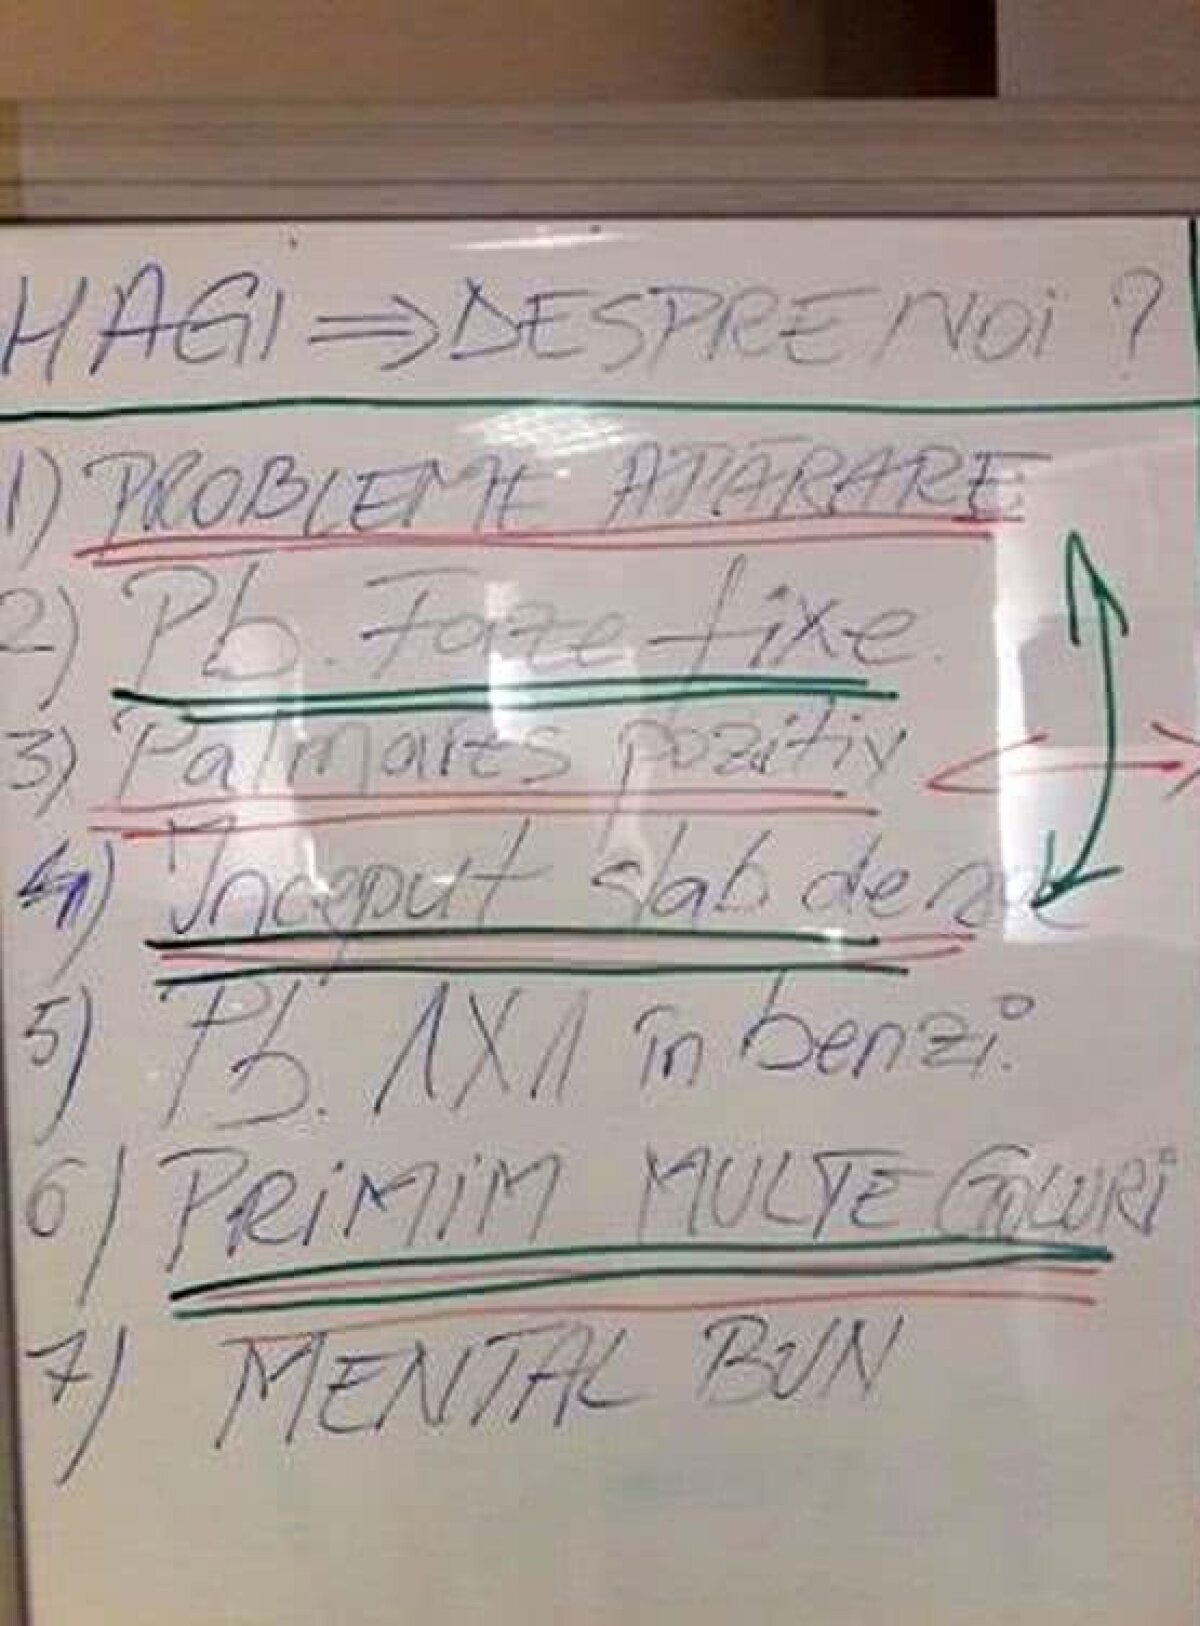 HAGi ⇒ DESPRE NOi ?
1) PROBLEME APARARE
2) Pb. Faze fixe.
3) Palmares pozitiv
4) Inceput slab de
5) Pb. 1X1 în benzi.
6) PRiMiM MULTE GOLURi
7) MENTAL BUN